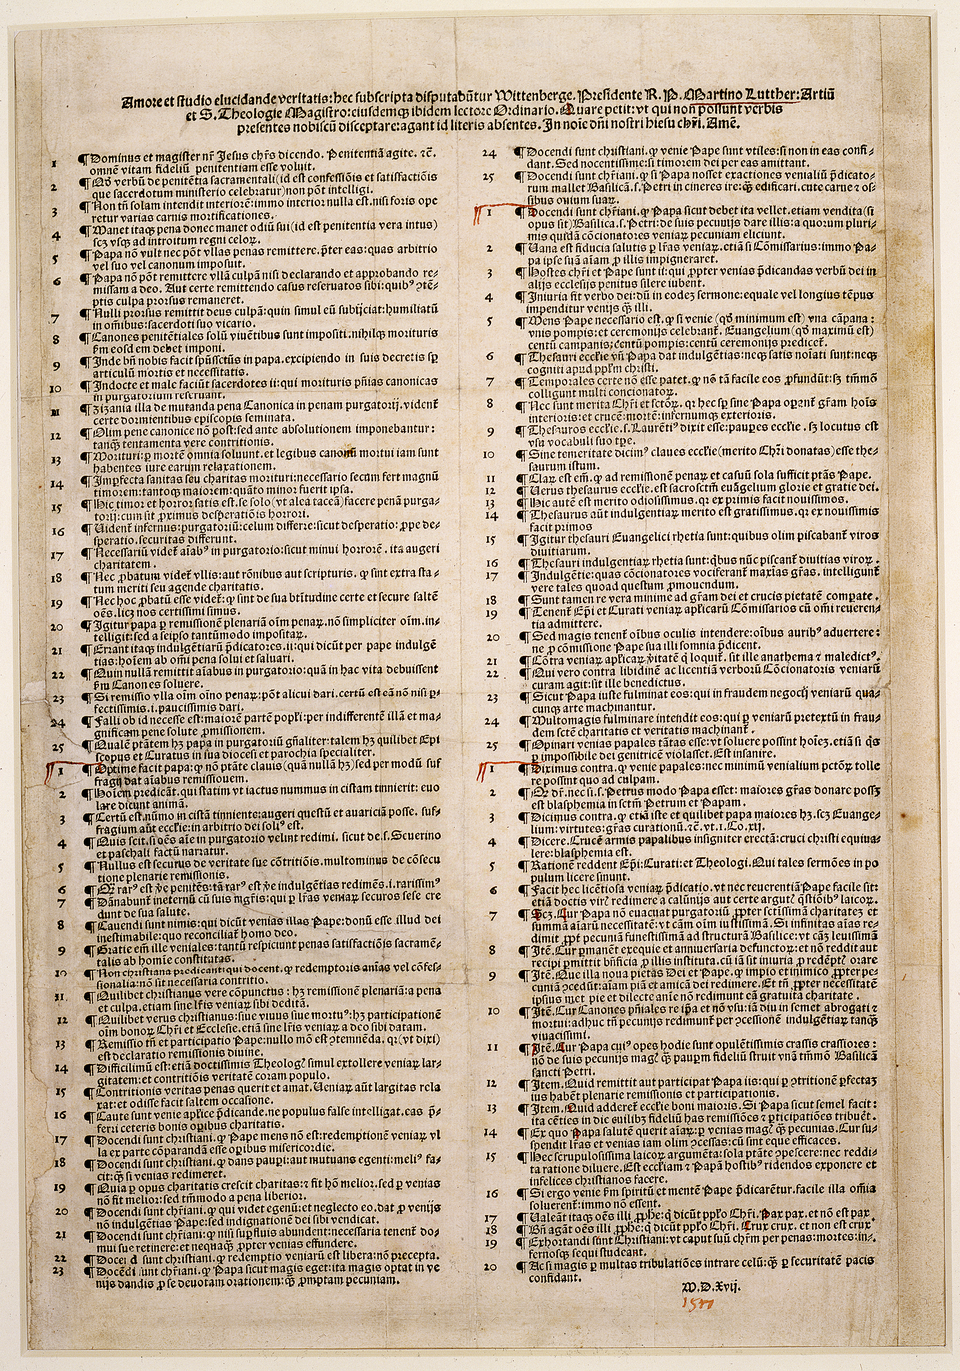 Amore et studio elucidande veritatis: hec subscripta disputabũtur Wittenberge. Presidente R. P. Martino Lutther: Artiũ
et S. Theologie Magistro: eiusdemq; ibidem lectore Ordinario. Quare petit: vt qui non possunt verbis
presentes nobiscũ disceptare: agant id literis absentes. In noĩe dñi nostri hiesu chr̃i. Amẽ.
1 ¶ Dominus et magister nr̃ Jesus chr̃s dicendo. Penitentiã agite. ⁊c̃.
omnẽ vitam fideliũ penitentiam esse voluit.
2 ¶ Qđ verbũ de penitẽtia sacramentali (id est confessiõis et satisfactiõis
que sacerdotum ministerio celebratur) non põt intelligi.
3 ¶ Non tñ solam intendit interiorẽ: immo interior nulla est. nisi foris ope
retur varias carnis mortificationes.
4 ¶ Manet itaq; pena donec manet odiũ sui (id est penitentia vera intus)
scꝫ vsq; ad introitum regni celoꝝ.
5 ¶ Papa nõ vult nec põt vllas penas remittere. p̃ter eas: quas arbitrio
vel suo vel canonum imposuit.
6 ¶ Papa nõ põt remittere vllã culpã nisi declarando et approbando re-
missam a deo. Aut certe remittendo casus reseruatos sibi: quibꝰ ꝯtẽ-
ptis culpa prorsus remaneret.
7 ¶ Nulli prorsus remittit deus culpã: quin simul eũ subijciat: humiliatũ
in om̃ibus: sacerdoti suo vicario.
8 ¶ Canones penitẽtiales solũ viuẽtibus sunt impositi. nihilq; morituris
ẽm eosdem debet imponi.
9 ¶ Inde bñ nobis facit sp̃ussctũs in papa. excipiendo in suis decretis sp̃
articulũ mortis et necessitatis.
10 ¶ Indocte et male faciũt sacerdotes ij: qui morituris pñias canonicas
in purgatorium reseruant.
11 ¶ Zizania illa de mutanda pena Canonica in penam purgatorij. vident̃
certe dormientibus episcopis seminata.
12 ¶ Olim pene canonice nõ post: sed ante absolutionem imponebantur:
tanq̃ tentamenta vere contritionis.
13 ¶ Morituri: ꝑ mortẽ omnia soluunt. et legibus canonũ mortui iam sunt
habentes iure earum relaxationem.
14 ¶ Imperfecta sanitas seu charitas morituri: necessario secam fert magnũ
timorem: tantoq; maiorem: quãto minor fuerit ipsa.
15 ¶ Hic timor et horror satis est. se solo (vt alea taceã) facere penã purga-
torij: cum sit proximus desperatiõis horrori.
16 ¶ Vident̃ infernus: purgatoriũ: celum differre: sicut desperatio: ꝓpe de-
speratio. securitas differunt.
17 ¶ Necessariũ videt̃ aĩabꝰ in purgatorio: sicut minui horrorẽ. ita augeri
charitatem.
18 ¶ Nec ꝓbatum videt̃ vllis: aut rõnibus aut scripturis. ꝙ sint extra sta-
tum meriti seu agende charitatis.
19 ¶ Nec hoc ꝓbatũ esse videt̃: ꝙ sint de sua btĩtudine certe et secure saltẽ
oẽs. licꝫ nos certissimi simus.
20 ¶ Igitur papa ꝑ remissionẽ plenariã oĩm penaꝝ. nõ simpliciter oĩm. in-
telligit: sed a seipso tantũmodo impositaꝝ.
21 ¶ Errant itaq; indulgẽtiarũ p̃dicatores. ij: qui dicũt per pape indulgẽ
tias: hoĩem ab om̃i pena solui et saluari.
22 ¶ Quin nullã remittit aĩabus in purgatorio: quã in hac vita debuissent
ẽm Canones soluere.
23 ¶ Si remissio vlla oĩm oĩno penaꝝ: põt alicui dari. certũ est eã nõ nisi ꝑ-
fectissimis. i. paucissimis dari.
24 ¶ Falli ob id necesse est: maiorẽ partẽ popl̃i: per indifferentẽ illã et ma-
gnificam pene solute ꝓmissionem.
25 ¶ Qualẽ p̃tãtem hꝫ papa in purgatoriũ gñaliter: talem hꝫ quilibet Epi
scopus et Curatus in sua diocesi et parochia specialiter.
1 ¶ Optime facit papa: ꝙ nõ ptãte clauis (quã nullã hꝫ) sed per modũ suf
fragij dat aĩabus remissionem.
2 ¶ Hoĩem p̃dicãt. qui statim vt iactus nummus in cistam tinnierit: euo
lare dicunt animã.
3 ¶ Certũ est. nũmo in cistã tinniente: augeri questũ et auariciã posse. suf-
fragium aũt eccl̃ie: in arbitrio dei solꝰ est.
4 ¶ Quis scit. si oẽs aĩe in purgatorio velint redimi. sicut de s. Seuerino
et paschali factũ narratur.
5 ¶ Nullus est securus de veritate sue cõtritiõis. multominus de cõsecu
tione plenarie remissionis.
6 ¶ Q̃ rarꝰ est ṽe penitẽs: tã rarꝰ est ṽe indulgẽtias redimẽs. i. rarissimꝰ
7 ¶ Dãnabunt̃ ineternũ cũ suis mgr̃is: qui ꝑ lr̃as veniaꝝ securos sese cre
dunt de sua salute.
8 ¶ Cauendi sunt nimis: qui dicũt venias illas Pape: donũ esse illud dei
inestimabile: quo reconciliat̃ homo deo.
9 ¶ Gratie em̃ ille veniales: tantũ respiciunt penas satisfactiõis sacramẽ-
talis ab homĩe constitutas.
10 ¶ Non christiana predicant: qui docent. ꝙ redemptoris aĩas vel cõfes-
sionalia: nõ sit necessaria contritio.
11 ¶ Quilibet christianus vere cõpunctus: hꝫ remissionẽ plenariã: a pena
et culpa. etiam sine lr̃is veniaꝝ sibi debitã.
12 ¶ Quilibet verus christianus: siue viuus siue mortuꝰ: hꝫ participationẽ
oĩm bonoꝝ Chr̃i et Ecclesie. etiã sine lr̃is veniaꝝ a deo sibi datam.
13 ¶ Remissio tñ et participatio Pape: nullo mõ est ꝯtemnẽda. q: (vt dixi)
est declaratio remissionis diuine.
14 ¶ Difficilimũ est: etiã doctissimis Theologꝰ simul extollere veniaꝝ lar-
gitatem: et contritiõis veritatẽ coram populo.
15 ¶ Contritionis veritas penas querit et amat. Veniaꝝ aũt largitas rela
xat: et odisse facit saltem occasione.
16 ¶ Caute sunt venie apl̃ice p̃dicande. ne populus false intelligat. eas p̃-
ferri ceteris bonis operibus charitatis.
17 ¶ Docendi sunt christiani. ꝙ Pape mens nõ est: redemptionẽ veniaꝝ vl
la ex parte cõparandã esse opibus misericordie.
18 ¶ Docendi sunt christiani. ꝙ dans paupi: aut mutuans egenti: meliꝰ fa-
cit: q̃ si venias redimeret.
19 ¶ Quia ꝑ opus charitatis crescit charitas: ⁊ fit hõ melior. sed ꝑ venias
nõ fit melior: sed tm̃modo a pena liberior.
20 ¶ Docendi sunt chr̃iani. ꝙ qui videt egenũ: et neglecto eo. dat ꝓ venijs
nõ indulgẽtias Pape: sed indignationẽ dei sibi vendicat.
21 ¶ Docendi sunt chr̃iani: ꝙ nisi supfluis abundent: necessaria tenent̃ do-
mui sue retinere: et nequaq̃ ꝓpter venias effundere.
22 ¶ Docẽdi sunt christiani. ꝙ redemptio veniarũ est libera: nõ precepta.
23 ¶ Docẽdi sunt chr̃iani. ꝙ Papa sicut magis eget: ita magis optat in ve
nijs dandis ꝓ se deuotam orationem: q̃ ꝓmptam pecuniam.
24 ¶ Docendi sunt christiani. ꝙ venie Pape sunt vtiles: si non in eas confi-
dant. Sed nocentissime: si timorem dei per eas amittant.
25 ¶ Docendi sunt chr̃iani. ꝙ si Papa nosset exactiones venialiũ p̃dicato-
rum mallet Basilicã. s. Petri in cineres ire: q̃ edificari. cute carne ⁊ os-
sibus ouium suaꝝ.
1 ¶ Docendi sunt chr̃iani. ꝙ Papa sicut debet ita vellet. etiam vendita (si
opus sit) Basilica. s. Petri: de suis pecunijs dare illis: a quorum pluri-
mis quidã cõcionatores veniaꝝ pecuniam eliciunt.
2 ¶ Vana est fiducia salutis ꝑ lr̃as veniaꝝ. etiã si Cõmissarius: immo Pa-
pa ipse suã aĩam ꝓ illis impigneraret.
3 ¶ Hostes chr̃i et Pape sunt ij: qui ꝓpter venias p̃dicandas verbũ dei in
alijs ecclesijs penitus silere iubent.
4 ¶ Iniuria fit verbo dei: dũ in eodẽ sermone: equale vel longius tẽpus
impenditur venijs q̃ illi.
5 ¶ Mens Pape necessario est. ꝙ si venie (qđ minimum est) vna cãpana:
vnis pompis: et ceremonijs celebrant̃. Euangelium (qđ maximũ est)
centũ campanis: centũ pompis: centũ ceremonijs predicet̃.
6 ¶ Thesauri eccl̃ie vñ Papa dat indulgẽtias: neq; satis noĩati sunt: neq;
cogniti apud ppl̃m christi.
7 ¶ Temporales certe nõ esse patet. ꝙ nõ tã facile eos ꝓfundũt: sꝫ tm̃mõ
colligunt multi concionatoꝝ.
8 ¶ Nec sunt merita Chr̃i et sctõꝝ. q: hec sp̃ sine Papa opant̃ gr̃am hoĩs
interioris: et crucẽ: mortẽ: infernumq; exterioris.
9 ¶ Thesauros eccl̃ie. s. Laurẽtiꝰ dixit esse: paupes eccl̃ie. sꝫ locutus est
vsu vocabuli suo tp̃e.
10 ¶ Sine temeritate dicimꝰ claues eccl̃ie (merito Chr̃i donatas) esse the-
saurum istum.
11 ¶ Claꝝ est em̃. ꝙ ad remissionẽ penaꝝ et casuũ sola sufficit ptãs Pape.
12 ¶ Verus thesaurus eccl̃ie. est sacrosctm̃ euãgelium glorie et gratie dei.
13 ¶ Hic autẽ est merito odiosissimus. q: ex primis facit nouissimos.
14 ¶ Thesaurus aũt indulgentiaꝝ merito est gratissimus. q: ex nouissimis
facit primos
15 ¶ Igitur thesauri Euangelici rhetia sunt: quibus olim piscabant̃ viros
diuitiarum.
16 ¶ Thesauri indulgentiaꝝ rhetia sunt: q̃bus nũc piscant̃ diuitias viroꝝ.
17 ¶ Indulgẽtie: quas cõcionatores vociferant̃ maximas gr̃as. intelligunt̃
vere tales quoad questum ꝓmouendum.
18 ¶ Sunt tamen re vera minime ad gr̃am dei et crucis pietatẽ compate.
19 ¶ Tenent̃ Ep̃i et Curati veniaꝝ apl̃icarũ Cõmissarios cũ om̃i reueren-
tia admittere.
20 ¶ Sed magis tenent̃ oĩbus oculis intendere: oĩbus auribꝰ aduertere:
ne ꝓ cõmissione Pape sua illi somnia p̃dicent.
21 ¶ Cõtra veniaꝝ apl̃icaꝝ ṽitatẽ q̃ loquit̃. sit ille anathema ⁊ maledictꝰ.
22 ¶ Qui vero contra libidinẽ ac licentiã verborũ Cõcionatoris veniarũ
curam agit: sit ille benedictus.
23 ¶ Sicut Papa iuste fulminat eos: qui in fraudem negocij veniarũ qua-
cunq; arte machinantur.
24 ¶ Multomagis fulminare intendit eos: qui ꝑ veniarũ pretextũ in frau-
dem sctẽ charitatis et veritatis machinant̃.
25 ¶ Opinari venias papales tãtas esse: vt soluere possint hoĩeꝫ. etiã si q̃s
ꝑ impossibile dei genitricẽ violasset. Est insanire.
1 ¶ Diximus contra. ꝙ venie papales: nec minimũ venialium pctõꝝ tolle
re possint quo ad culpam.
2 ¶ Qđ dr̃. nec si. s. Petrus modo Papa esset: maiores gr̃as donare possꝫ
est blasphemia in sctm̃ Petrum et Papam.
3 ¶ Dicimus contra. ꝙ etiã iste et quilibet papa maiores hꝫ. scꝫ Euange-
lium: virtutes: gr̃as curationũ. ⁊c̃. vt. i. Co. xij.
4 ¶ Dicere. Crucẽ armis papalibus insigniter erectã: cruci christi equiua-
lere: blasphemia est.
5 ¶ Rationẽ reddent Ep̃i: Curati: et Theologi. Qui tales sermões in po
pulum licere sinunt.
6 ¶ Facit hec licẽtiosa veniaꝝ p̃dicatio. vt nec reuerentiã Pape facile sit:
etiã doctis viris redimere a calũnijs aut certe argutꝰ q̃stiõibꝰ laicoꝝ.
7 ¶ Scꝫ. Cur Papa nõ euacuat purgatoriũ ꝓpter sctissimã charitateꝫ et
summã aĩarũ necessitatẽ: vt cãm oĩm iustissimã. Si infinitas aĩas re-
dimit ꝓpt̃ pecuniã funestissimã ad structurã Basilice: vt cãꝫ leuissimã
8 ¶ Itẽ. Cur permanẽt exequie et anniuersaria defunctoꝝ: et nõ reddit aut
recipi ꝑmittit bñficia ꝓ illis instituta. cũ iã sit iniuria ꝓ redẽptꝰ orare
9 ¶ Itẽ. Que illa noua pietas Dei et Pape. ꝙ impio et inimico ꝓpter pe-
cuniã ꝯcedũt: aĩam piã et amicã dei redimere. Et tñ ꝓpter necessitatẽ
ipsius met pie et dilecte aĩe nõ redimunt eã gratuita charitate.
10 ¶ Itẽ. Cur Canones pñiales re ip̃a et nõ vsu: iã diu in semet abrogati ⁊
mortui: adhuc tñ pecunijs redimunt̃ ꝑ ꝯcessionẽ indulgẽtiaꝝ tanq̃
viuacissimi.
11 ¶ Itẽ. Cur Papa cuiꝰ opes hodie sunt opulẽtissimis crassis crassiores:
nõ de suis pecunijs magꝰ q̃ paupꝝ fideliũ struit vnã tm̃mõ Basilicã
sancti Petri.
12 ¶ Item. Quid remittit aut participat Papa iis: qui ꝑ ꝯtritionẽ ꝑfectaꝫ
ius habẽt plenarie remissionis et participationis.
13 ¶ Item. Quid adderet̃ eccl̃ie boni maioris. Si Papa sicut semel facit:
ita cẽties in die cuilibꝫ fideliũ has remissiões ⁊ ꝑticipatiões tribuẽt.
14 ¶ Ex quo Papa salutẽ querit aĩaꝝ: ꝑ venias magꝰ q̃ pecunias. Cur su-
spendit lr̃as et venias iam olim ꝯcessas: cũ sint eque efficaces.
15 ¶ Hec scrupulosissima laicoꝝ argumẽta: sola ptãte ꝯpescere: nec reddi-
ta ratione diluere. Est eccl̃iam ⁊ Papã hostibꝰ ridendos exponere et
infelices christianos facere.
16 ¶ Si ergo venie ẽm spiritũ et mentẽ Pape p̃dicarẽtur. facile illa omnia
soluerent̃: immo nõ essent.
17 ¶ Valeãt itaq; oẽs illi ꝓphe: q̃ dicũt ppl̃o Chr̃i. Pax pax. et nõ est pax.
18 ¶ Bñ agãt oẽs illi ꝓphe: q̃ dicũt ppl̃o Chr̃i. Crux crux. et non est crux
19 ¶ Exhortandi sunt Christiani: vt caput suũ chr̃m per penas: mortes: in-
fernosq; sequi studeant.
20 ¶ Ac si magis ꝑ multas tribulatiões intrare celũ: q̃ ꝑ securitatẽ pacis
confidant.
M. D. Xvij.
1517